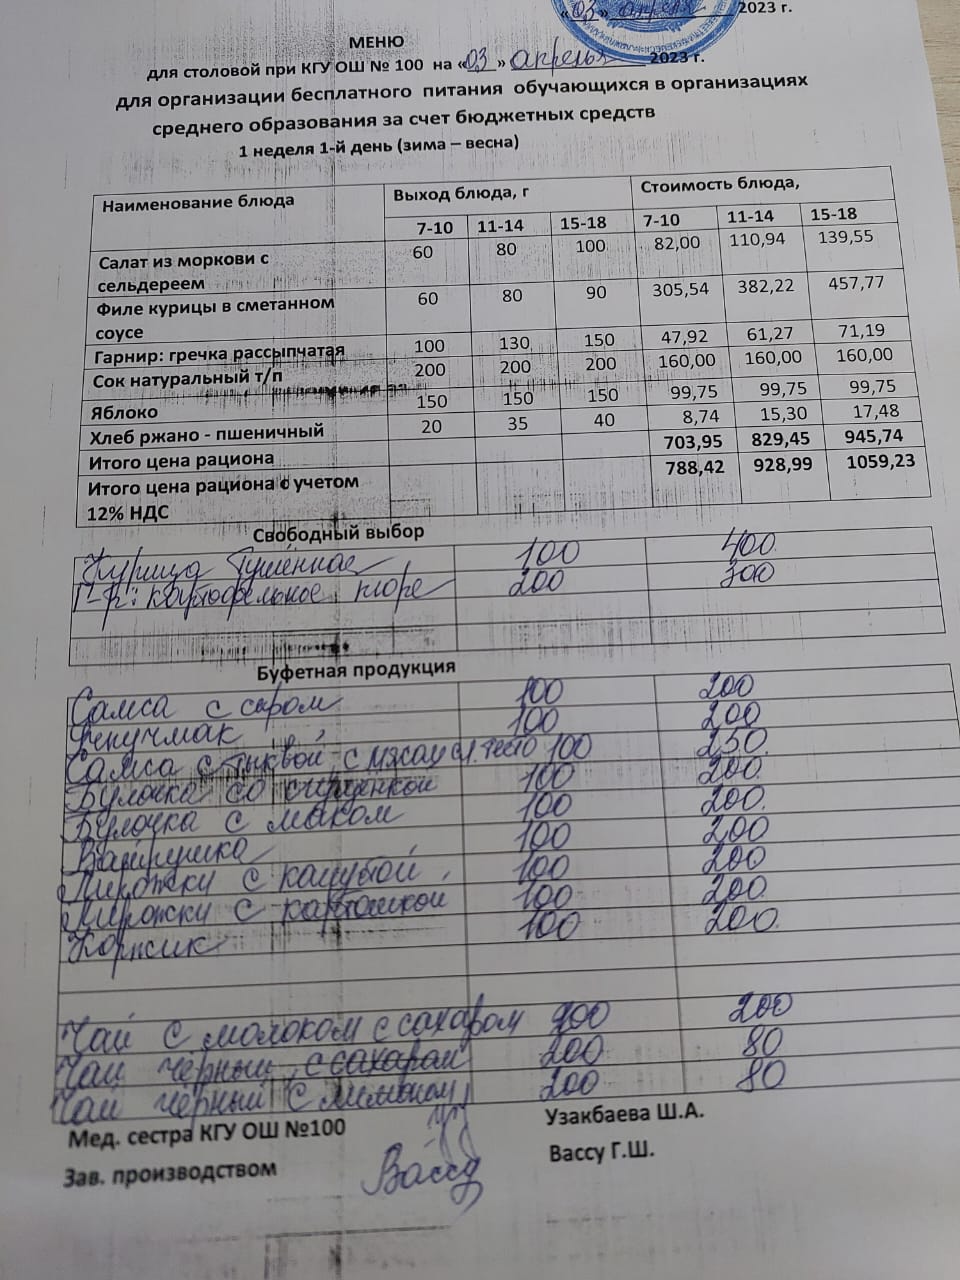 «03» апреля 2023 г.
МЕНЮ
для столовой при КГУ ОШ № 100 на «03» апреля 2023 г.
для организации бесплатного питания обучающихся в организациях
среднего образования за счет бюджетных средств
1 неделя 1-й день (зима – весна)
Наименование блюда Выход блюда, г Стоимость блюда,
7-10 11-14 15-18 7-10 11-14 15-18
Салат из моркови с 60 80 100 82,00 110,94 139,55
сельдереем
Филе курицы в сметанном 60 80 90 305,54 382,22 457,77
соусе
Гарнир: гречка рассыпчатая 100 130 150 47,92 61,27 71,19
Сок натуральный т/п 200 200 200 160,00 160,00 160,00
Яблоко 150 150 150 99,75 99,75 99,75
Хлеб ржано - пшеничный 20 35 40 8,74 15,30 17,48
Итого цена рациона 703,95 829,45 945,74
Итого цена рациона с учетом 788,42 928,99 1059,23
12% НДС
Свободный выбор
Курица тушенное 100 400
Г-р: картофельное пюре 200 300
Буфетная продукция
Самса с сыром 100 200
Учпучмак 100 200
Самса с тыквой с мясом сл. тесто 100 250
Булочка со сгущенкой 100 200
Булочка с маком 100 200
Ватрушка 100 200
Пирожки с капустой 100 200
Пирожки с картошкой 100 200
Коржик 100 200
Чай с молоком с сахаром 200 200
Чай черный с сахаром 200 80
Чай черный с лимоном 200 80
Мед. сестра КГУ ОШ №100 Узакбаева Ш.А.
Зав. производством Вассу Вассу Г.Ш.